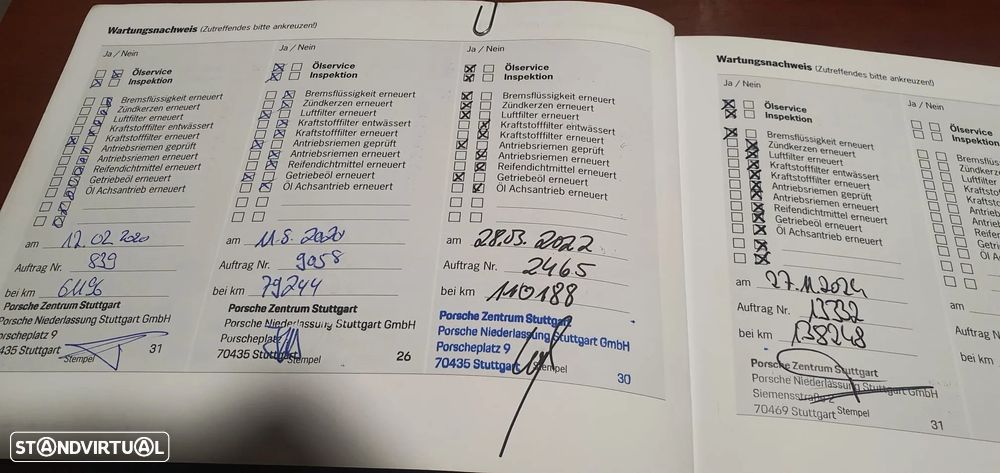 Wartungsnachweis (Zutreffendes bitte ankreuzen!)
Ja / Nein
Ölservice
Inspektion
Bremsflüssigkeit erneuert
Zündkerzen erneuert
Luftfilter erneuert
Kraftstofffilter entwässert
Kraftstofffilter erneuert
Antriebsriemen geprüft
Antriebsriemen erneuert
Reifendichtmittel erneuert
Getriebeöl erneuert
Öl Achsantrieb erneuert
am 12.02.2020
Auftrag Nr. 839
bei km 61196
Porsche Zentrum Stuttgart
Porsche Niederlassung Stuttgart GmbH
Porscheplatz 9
70435 Stuttgart
Stempel
31
Ja / Nein
Ölservice
Inspektion
Bremsflüssigkeit erneuert
Zündkerzen erneuert
Luftfilter erneuert
Kraftstofffilter entwässert
Kraftstofffilter erneuert
Antriebsriemen geprüft
Antriebsriemen erneuert
Reifendichtmittel erneuert
Getriebeöl erneuert
Öl Achsantrieb erneuert
am
Auftrag Nr. 9058
bei km 79244
Porsche Zentrum Stuttgart
Porsche Niederlassung Stuttgart GmbH
70435 Stuttgart
Stempel
26
Ja / Nein
Ölservice
Inspektion
Bremsflüssigkeit erneuert
Zündkerzen erneuert
Luftfilter erneuert
Kraftstofffilter entwässert
Kraftstofffilter erneuert
Antriebsriemen geprüft
Antriebsriemen erneuert
Reifendichtmittel erneuert
Getriebeöl erneuert
Öl Achsantrieb erneuert
am 28.03.2022
Auftrag Nr. 2465
bei km 110188
Porsche Zentrum Stuttgart
Porsche Niederlassung Stuttgart GmbH
Porscheplatz 9
70435 Stuttgart
Stempel
30
Wartungsnachweis (Zutreffendes bitte ankreuzen!)
Ja / Nein
Ölservice
Inspektion
Bremsflüssigkeit erneuert
Zündkerzen erneuert
Luftfilter erneuert
Kraftstofffilter entwässert
Kraftstofffilter erneuert
Antriebsriemen geprüft
Antriebsriemen erneuert
Reifendichtmittel erneuert
Getriebeöl erneuert
Öl Achsantrieb erneuert
am 27.11.2024
Auftrag Nr. 13332
bei km 138248
Porsche Zentrum Stuttgart
Porsche Niederlassung Stuttgart GmbH
Siemensstraße 2
70469 Stuttgart
Stempel
31
Ja / Nein
Ölservice
Inspektion
am
Auftrag
bei km
STANDVIRTUAL